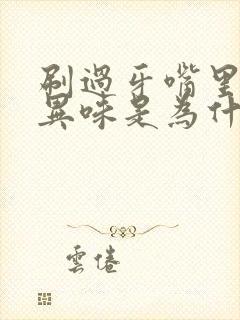 刷過牙嘴里
異味是為什
雲倦